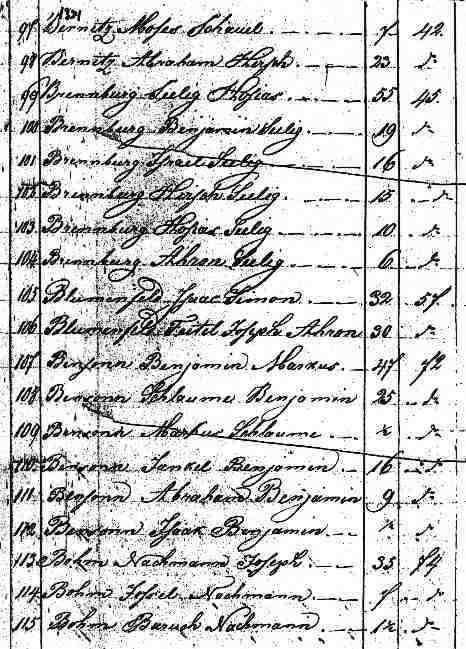 1331
97 Bernitz Moses Schauel 7 42
98 Bernitz Abraham Hirsch 23 d-
99 Brennburg Seelig Hosias 55 45
100 Brennburg Benjamin Seelig 19 d-
101 Brennburg Israel Seelig 16 d-
102 Brennburg Hirsch Seelig 15 d-
103 Brennburg Hosias Seelig 10 d-
104 Brennburg Ahron Seelig 6 d-
105 Blumenfeld Isaac Simon 32 57
106 Blumenfeld Feitel Joseph Ahron 30 d-
107 Bensonn Benjamin Markus 47 72
108 Bensonn Schlaume Benjamin 25 d-
109 Bensonn Markus Schlaume d-
110 Bensonn Jankel Benjamin 16 d-
111 Bensonn Abraham Benjamin 9 d-
112 Bensonn Isaak Benjamin d-
113 Bohm Nachmann Joseph 35 74
114 Bohm Jossel Nachmann d-
115 Bohm Baruch Nachmann d-